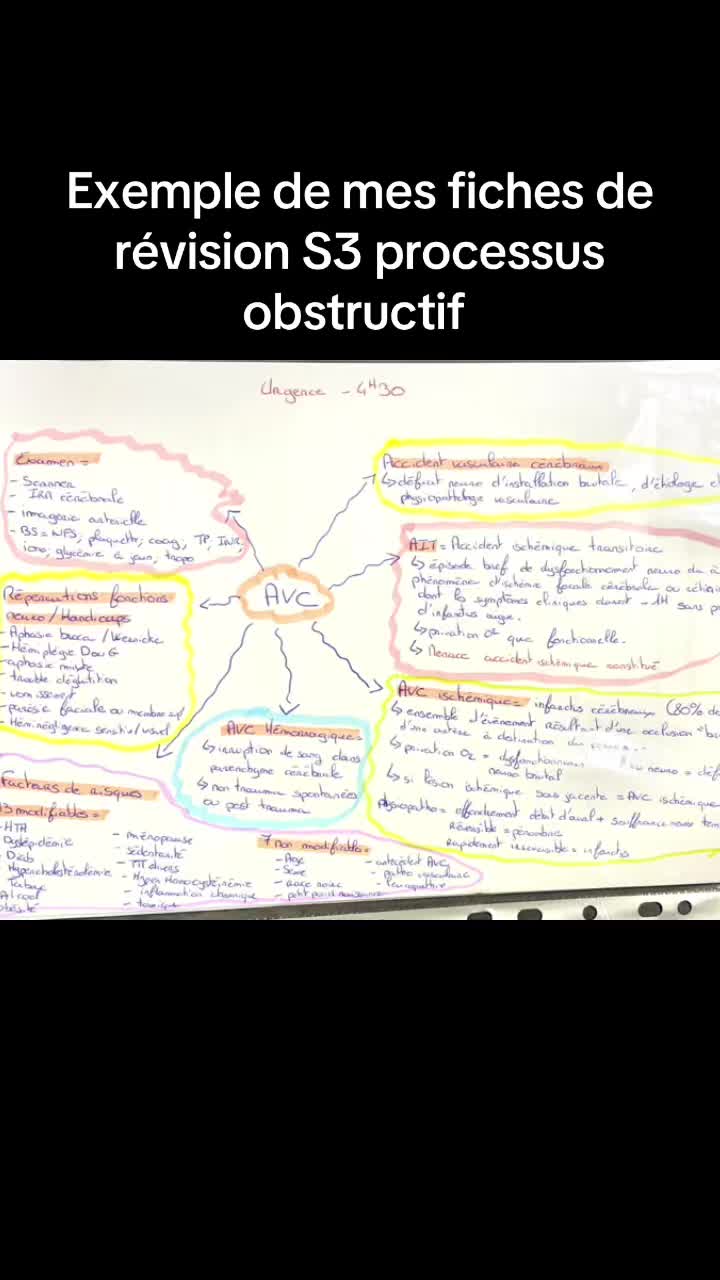 Exemple de mes fiches de
révision S3 processus
obstructif
Urgence - 4H30
Examen =
- Scanner
- IRM cérébrale
- imagerie artérielle
- BS = NFS, plaquette, coag, TP, INR,
iono, glycémie à jeun, tropo
Répercutions fonctions
neuro / Handicaps
- Aphasie broca / Wernicke
- Hémiplégie D ou G
- aphasie mixte
- trouble déglutition
- vomissement
- parésie faciale ou membre sup
- Héminégligence sensitive / visuel
AVC
Accident vasculaire cérébraux
↳ déficit neuro d'installation brutale, d'étiologie et
physiopathologie vasculaire
AIT = Accident ischémique transitoire
↳ épisode bref de dysfonctionnement neuro du à
phénomène d'ischémie focale cérébrale ou
dont les symptômes cliniques durent - 1H sans
d'infarctus aigue.
↳ privation O2 que fonctionelle.
↳ Menace accident ischémique constitué
AVC ischémique = infarctus cérébraux (80%
↳ ensemble d'évènement résultant d'une occlusion
d'une artère à destination du
↳ privation O2 = dysfonctionnement neuro =
neuro brutal
↳ si lésion ischémique sous jacente = AVC ischémique
physiopatho = effondrement débit d'aval + souffrance
Réversible = pénombre
Rapidement irréversible = infarctus
AVC Hémorragique =
↳ irruption de sang dans
parenchyme cérébrale
↳ non trauma spontanées
ou post trauma
Facteurs de risques
13 modifiables =
- HTA
Dyslipidémie
- Diab
- Hypercholestérolémie
- Tabac
Alcool
obésité
- ménopause
- sédentarité
- TTT divers
- Hyper Homocystéinémie
- inflammation chronique
- toxique
7 non modifiable =
- Age
- Sexe
- race noire
- petit poid naissance
- antécédent AVC
- patho vasculaire